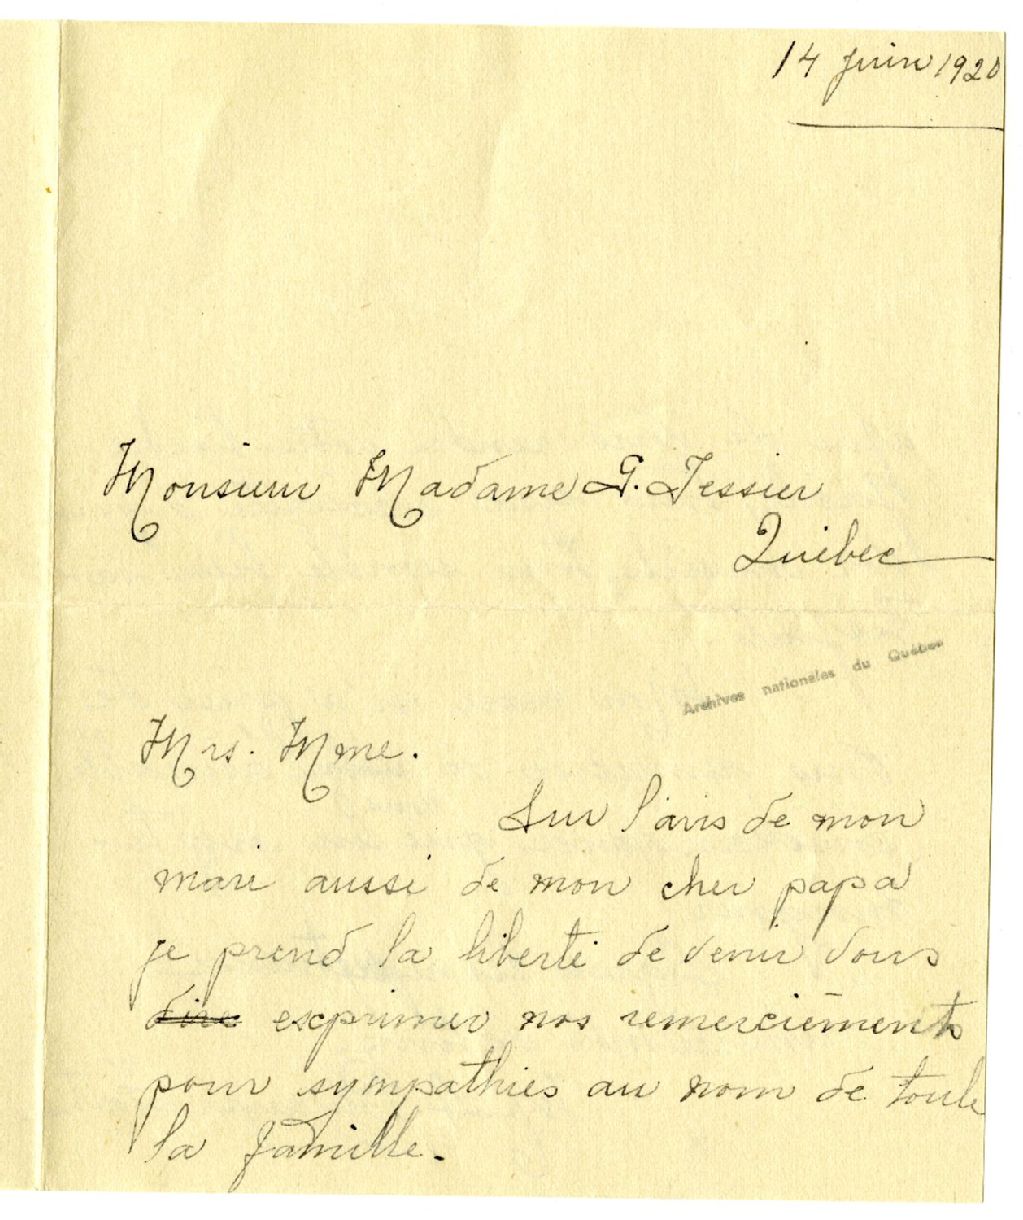 14 juin 1920
Monsieur Madame G. Tessier
Québec
Archives nationales du Québec
Mrs. Mme.
Sur l'avis de mon
mari aussi de mon cher papa
je prend la liberté de venir vous
dire exprimer nos remerciements
pour sympathies au nom de toute
la famille.